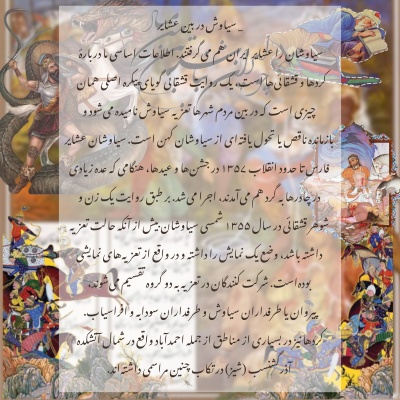 _ سیاوش در بین عشایر
سیاوشان را عشایر ایران هم می گرفتند. اطلاعات اساسی ما دربارهٔ
کردها و قشقائی ها است. یک روایت قشقائی گویای پیکره اصلی همان
چیزی است که در بین مردم شهرها تعزیه سیاوش نامیده می شود و
بازمانده ناقص یا تحول یافته ای از سیاوشان کهن است. سیاوشان عشایر
فارس تا حدود انقلاب ۱۳۵۷ در جشن ها و عیدها، هنگامی که عده زیادی
در چادرها به گرد هم می آمدند، اجرا می شد. بر طبق روایت یک زن و
شوهر قشقائی در سال ۱۳۵۵ شمسی سیاوشان بیش از آنکه حالت تعزیه
داشته باشد، وضع یک نمایش را داشته و در واقع از تعزیه های نمایشی
بوده است. شرکت کنندگان در تعزیه به دو گروه تقسیم می شوند،
پیروان یا طرفداران سیاوش و طرفداران سودابه و افراسیاب.
کردها نیز در بسیاری از مناطق از جمله احمدآباد واقع در شمال آتشکده
آذرگشنسب (شیز) در تکاب چنین مراسمی داشته اند.